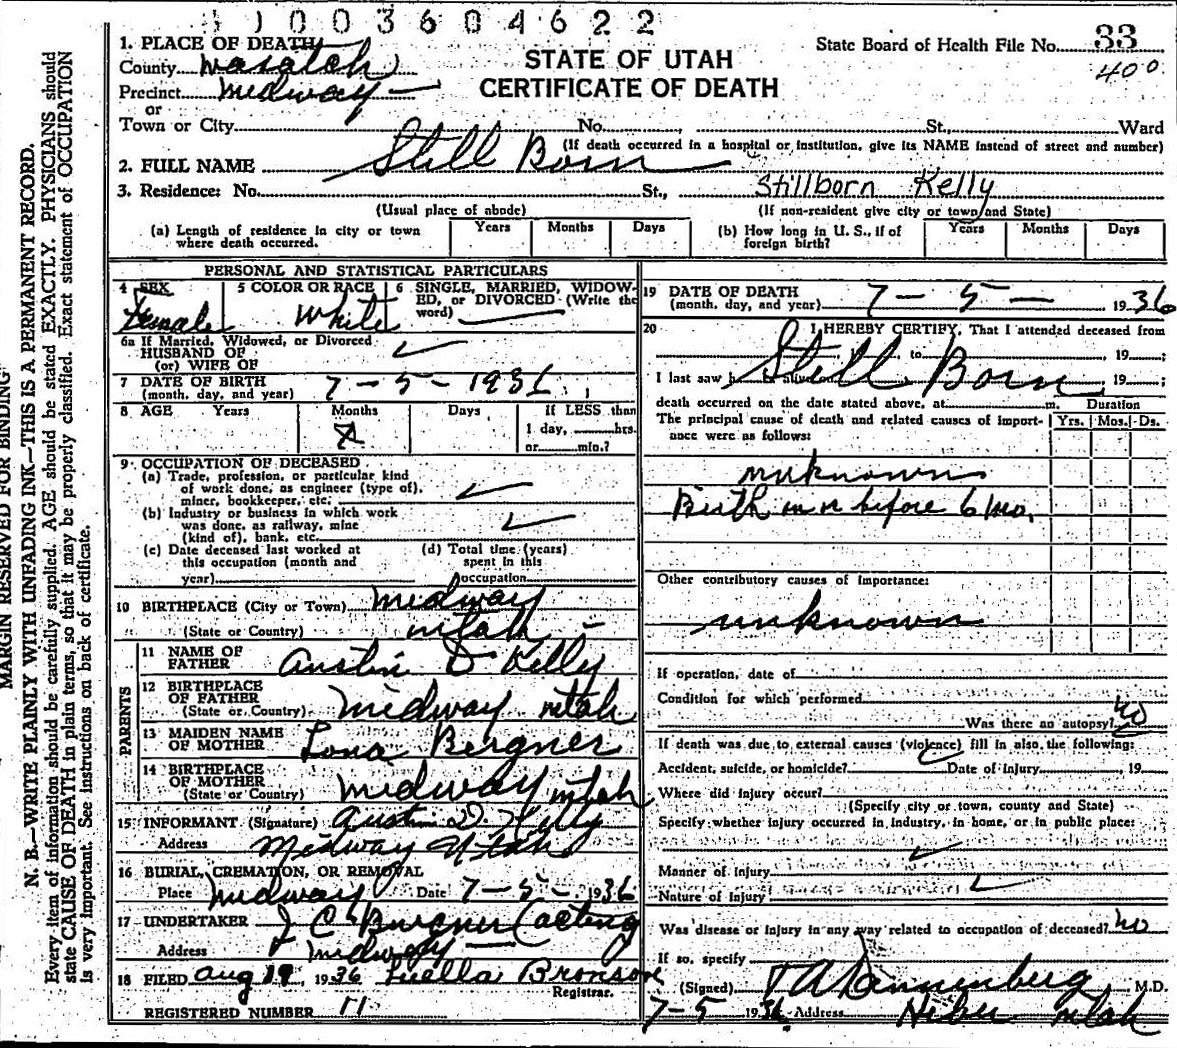 1003604622
33
400
State Board of Health File No.
STATE OF UTAH
CERTIFICATE OF DEATH
1. PLACE OF DEATH
County Wasatch
Precinct Midway
or
Town or City No. , St., Ward
(If death occurred in a hospital or institution, give its NAME instead of street and number)
2. FULL NAME Still Born
3. Residence: No. St., Stillborn Kelly
(Usual place of abode) (If non-resident give city or town and State)
(a) Length of residence in city or town where death occurred. Years Months Days
(b) How long in U. S., if of foreign birth? Years Months Days
PERSONAL AND STATISTICAL PARTICULARS
4 SEX Female
5 COLOR OR RACE White
6 SINGLE, MARRIED, WIDOWED, or DIVORCED (Write the word)
6a If Married, Widowed, or Divorced
HUSBAND OF
(or) WIFE OF
7 DATE OF BIRTH
(month, day, and year) 7-5-1936
8 AGE Years Months Days If LESS than
1 day, hrs.
or min.?
9 OCCUPATION OF DECEASED
(a) Trade, profession, or particular kind
of work done, as engineer (type of),
miner, bookkeeper, etc.
(b) Industry or business in which work
was done, as railway, mine
(kind of), bank, etc.
(c) Date deceased last worked at
this occupation (month and
year)
(d) Total time (years)
spent in this
occupation
10 BIRTHPLACE (City or Town) Midway
(State or Country) Utah
PARENTS
11 NAME OF
FATHER Austin D Kelly
12 BIRTHPLACE
OF FATHER
(State or Country) Midway Utah
13 MAIDEN NAME
OF MOTHER Lona Bergner
14 BIRTHPLACE
OF MOTHER
(State or Country) Midway Utah
15 INFORMANT (Signature) Austin D Kelly
Address Midway Utah
16 BURIAL, CREMATION, OR REMOVAL
Place Midway Date 7-5- 1936
17 UNDERTAKER J C Burgner (acting
Address Midway
18 FILED Aug 19, 1936 Luella Bronson
Registrar.
REGISTERED NUMBER 11
19 DATE OF DEATH
(month, day, and year) 7-5- 1936
20 I HEREBY CERTIFY, That I attended deceased from
to , 19 ;
I last saw h alive Still Born , 19 ;
death occurred on the date stated above, at m. Duration
The principal cause of death and related causes of importance were as follows: Yrs. Mos. Ds.
unknown
Birth before 6 mo.
Other contributory causes of importance:
unknown
If operation, date of
Condition for which performed
Was there an autopsy? no
If death was due to external causes (violence) fill in also the following:
Accident, suicide, or homicide? Date of injury , 19
Where did injury occur?
(Specify city or town, county and State)
Specify whether injury occurred in industry, in home, or in public place:
Manner of injury
Nature of injury
Was disease or injury in any way related to occupation of deceased? no
If so, specify
(Signed) Dannenberg, M.D.
7-5 1936 Address Heber Utah
MARGIN RESERVED FOR BINDING
N. B.—WRITE PLAINLY WITH UNFADING INK—THIS IS A PERMANENT RECORD.
Every item of information should be carefully supplied. AGE should be stated EXACTLY. PHYSICIANS should
state CAUSE OF DEATH in plain terms, so that it may be properly classified. Exact statement of OCCUPATION
is very important. See instructions on back of certificate.